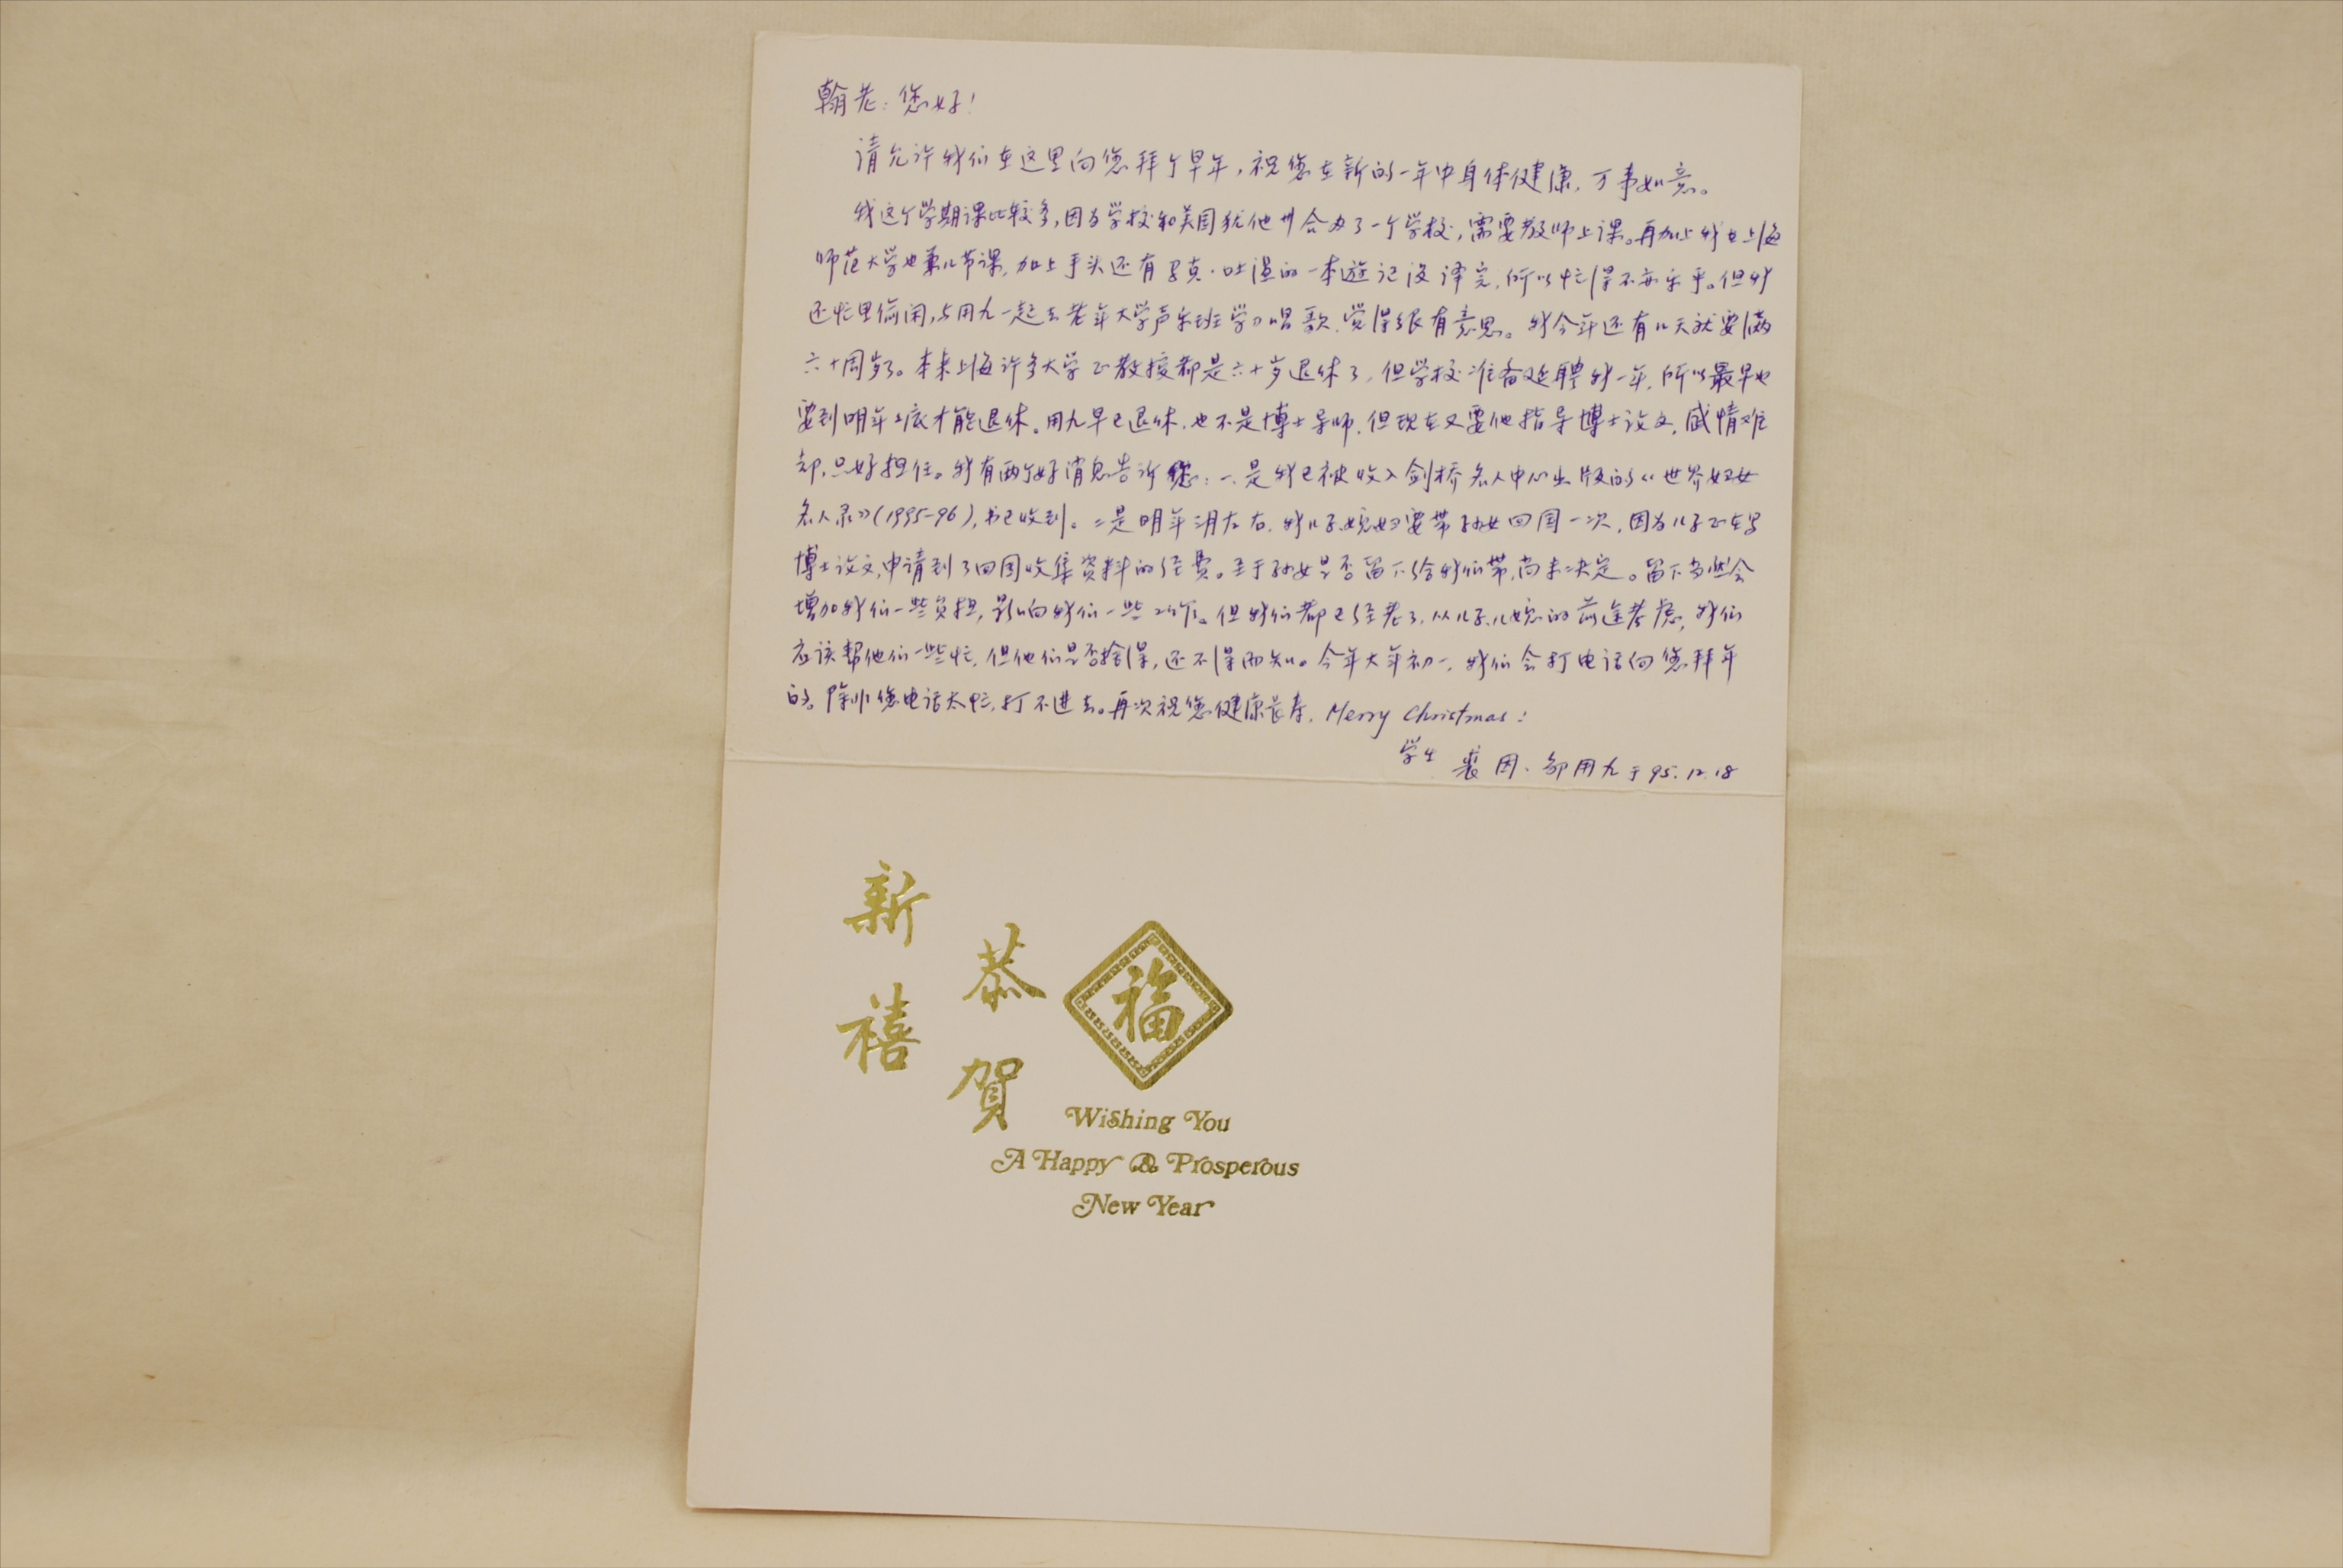 翰老：您好！
请允许我们在这里向您拜个早年，祝您在新的一年中身体健康，万事如意。
我这个学期课比较多，因为学校和美国犹他州合办了一个学校，需要教师上课。再加上我在上海
师范大学也兼几节课，加上手头还有马克·吐温的一本遊记没译完，所以忙得不亦乐乎。但我
还忙里偷闲，与用九一起去老年大学声乐班学习唱歌，觉得很有意思。我今年还有几天就要满
六十周岁了。本来上海许多大学正教授都是六十岁退休了，但学校准备延聘我一年，所以最早也
要到明年底才能退休。用九早已退休，也不是博士导师，但现在又要他指导博士论文，感情难
却，只好担任。我有两个好消息告诉您：一、是我已被收入剑桥名人中心出版的《世界妇女
名人录》(1995-96)，书已收到。二是明年三月左右，我儿子媳妇要带孙女回国一次，因为儿子正在写
博士论文，申请到了回国收集资料的经费。至于孙女是否留下给我们带，尚未决定。留下当然会
增加我们一些负担，影响我们一些工作。但我们都已经老了，从儿子、儿媳的前途考虑，我们
应该帮他们一些忙，但他们是否捨得，还不得而知。今年大年初一，我们会打电话向您拜年
的。除非您电话太忙，打不进去。再次祝您健康长寿，Merry Christmas!
学生 裘因、邹用九于95.12.18
恭賀
新禧
福
Wishing You
A Happy & Prosperous
New Year